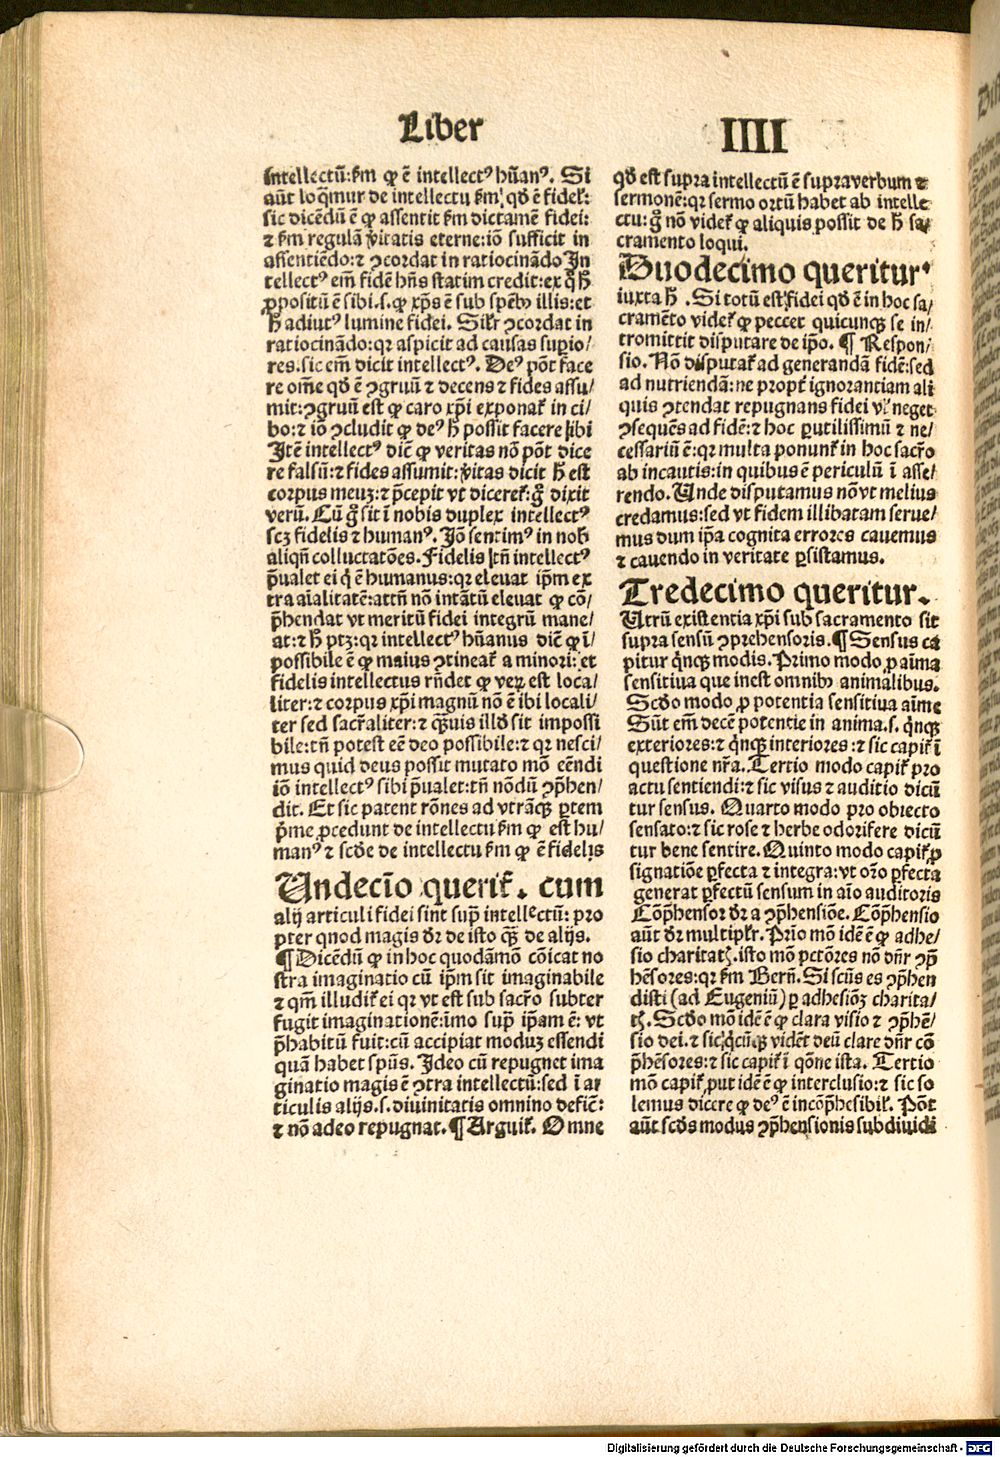 Liber
IIII
intellectū: ẜm qꝙ ē intellectꝰ hūanꝰ. Si
aūt loq̄mur de intellectu ẜm qꝙ ē fidel̛:
sic dicēdū ē ꝙ assentit ẜm dictamē fidei:
⁊ ẜm regulā v̄itatis eterne: iō sufficit in
assentiēdo: ⁊ ꝯcordat in ratiocinādo In
tellectꝰ em̄ fidē hn̄s statim credit: ex q̊ ħ
ꝓpositū ē sibi .s. ꝙ xp̄s ē sub spēbꝰ illis: et
ħ adiutꝰ lumine fidei. Sil̛r ꝯcordat in
ratiocinādo: qr aspicit ad causas supio/
res: sic em̄ dicit intellectꝰ. Deꝰ pōt face
re om̄e qd̛ ē ꝯgruū ⁊ decens ⁊ fides assu/
mit: ꝯgruū est ꝙ caro xp̄i exponat̛ in ci/
bo: ⁊ iō ꝯcludit ꝙ deꝰ ħ possit facere sibi
Itē intellectꝰ dic̄ ꝙ veritas nō pōt dice
re falsū: ⁊ fides assumit: v̄itas dicit ħ est
corpus meuꝫ: ⁊ p̄cepit vt diceret̛: g̊ dixit
verū. Cū g̊ sit ī nobis duplex intellectꝰ
scꝫ fidelis ⁊ humanꝰ. Iō sentimꝰ in nob̄
aliqn̄ colluctatōes. Fidelis tn̄ intellectꝰ
p̄ualet ei q̇ ē humanus: qr eleuat ip̄m ex
tra aīalitatē: attn̄ nō intātū eleuat ꝙ cō/
p̄hendat vt meritū fidei integrū mane/
at: ⁊ ħ ptꝫ: qr intellectꝰ hūanus dic̄ ꝙ ī/
possibile ē ꝙ maius ꝯtineat̛ a minori: et
fidelis intellectus rn̄det ꝙ veꝝ est loca/
liter: ⁊ corpus xp̄i magnū nō ē ibi locali/
ter sed sacr̄aliter: ⁊ qᷓuis illd̛ sit impossi
bile: tn̄ potest eē deo possibile: ⁊ qr nesci/
mus quid deus possit mutato mō eēndi
iō intellectꝰ sibi p̄ualet: tn̄ nōdū ꝯp̄hen/
dit. Et sic patent rōnes ad vtrāqꝫ ꝑtem
p̄me ꝓcedunt de intellectu ẜm ꝙ est hu/
manꝰ ⁊ scd̛e de intellectu ẜm ꝙ ē fidelis
Undeciō querit̛. cum
alij articuli fidei sint sup̄ intellectū: pro
pter qnod magis dr̄ de isto qᷓꝫ de alijs.
¶ Dicēdū ꝙ in hoc quodāmō cōicat no
stra imaginatio cū ip̄m sit imaginabile
⁊ qm̄ illudit̛ ei qr vt est sub sacr̄o subter
fugit imaginationē: īmo sup̄ ip̄am ē: vt
p̄habitū fuit: cū accipiat moduꝫ essendi
quā habet spūs. Ideo cū repugnet ima
ginatio magis ē ꝯtra intellectū: sed ī ar
ticulis alijs .s. diuinitatis omnino defic̄:
⁊ nō adeo repugnat. ¶ Arguit̛. Omne
qd̛ est supra intellectū ē supra verbum ⁊
sermonē: qr sermo ortū habet ab intelle
ctu: g̊ nō videt̛ ꝙ aliquis possit de ħ sa/
cramento loqui.
Duodecimo queritur
iuxta ħ. Si totū est fidei qd̛ ē in hoc sa/
cramēto videt̛ ꝙ peccet quicunqꝫ se in/
tromittit disputare de ip̄o. ¶ Respon/
sio. Nō disputat̛ ad generandā fidē: sed
ad nutriendā: ne propt̛ ignorantiam ali
quis ꝯtendat repugnans fidei vl̛ neget
ꝯsequēs ad fidē: ⁊ hoc ꝑutilissimū ⁊ ne/
cessariū ē: qr multa ponunt̛ in hoc sacr̄o
ab incautis: in quibus ē periculū ī asse/
rendo. Unde disputamus nō vt melius
credamus: sed vt fidem illibatam serue/
mus dum ip̄a cognita errores cauemus
⁊ cauendo in veritate ꝑsistamus.
Tredecimo queritur.
Utrū existentia xp̄i sub sacramento sit
supra sensū ꝯprehensoris. ¶ Sensus ca
pitur q̇nqꝫ modis. Primo modo ꝓ aīma
sensitiua que inest omnibꝰ animalibus.
Scd̛o modo ꝓ potentia sensitiua aīme
Sūt em̄ decē potentie in anima .s. q̇nqꝫ
exteriores: ⁊ q̇nqꝫ interiores: ⁊ sic capit̛ ī
questione nr̄a. Tertio modo capit̛ pro
actu sentiendi: ⁊ sic visus ⁊ auditio dicū
tur sensus. Quarto modo pro obiecto
sensato: ⁊ sic rose ⁊ herbe odorifere dicū
tur bene sentire. Quinto modo capit̛ ꝓ
signatiōe ꝑfecta ⁊ integra: vt or̄o ꝑfecta
generat ꝑfectū sensum in aīo auditoris
Cōp̄hensor dr̄ a ꝯp̄hensiōe. Cōp̄hensio
aūt dr̄ multipl̛r. Prīo mō idē ē ꝙ adhe/
sio charitatꝭ. isto mō pctōres nō dn̄r ꝯp̄
hēsores: qr ẜm Bern̄. Si scūs es ꝯp̄hen
disti (ad Eugeniū) ꝑ adhesiōꝫ charita/
tꝭ. Scd̛o mō idē ē ꝙ clara visio ⁊ ꝯp̄hē/
sio dei. ⁊ sic q̇cūqꝫ vidēt deū clare dn̄r cō
p̄hēsores: ⁊ sic capit̛ ī qōne ista. Tertio
mō capit̛ ꝓut idē ē ꝙ interclusio: ⁊ sic so
lemus dicere ꝙ deꝰ ē incōp̄hēsibil̛. Pōt
aūt scd̛s modus ꝯp̄hensionis subdiuidi
Digitalisierung gefördert durch die Deutsche Forschungsgemeinschaft - DFG